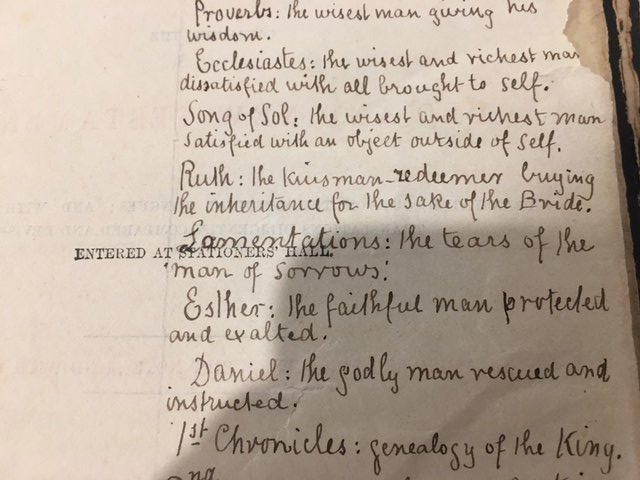 Proverbs: the wisest man giving his
wisdom.
Ecclesiastes: the wisest and richest man
dissatisfied with all brought to self.
Song of Sol: the wisest and richest man
satisfied with an object outside of self.
Ruth: the kinsman-redeemer buying
the inheritance for the sake of the Bride.
Lamentations: the tears of the
ENTERED AT STATIONERS' HALL.
'man of sorrows.'
Esther: the faithful man protected
and exalted.
Daniel: the godly man rescued and
instructed.
1st Chronicles: genealogy of the King.